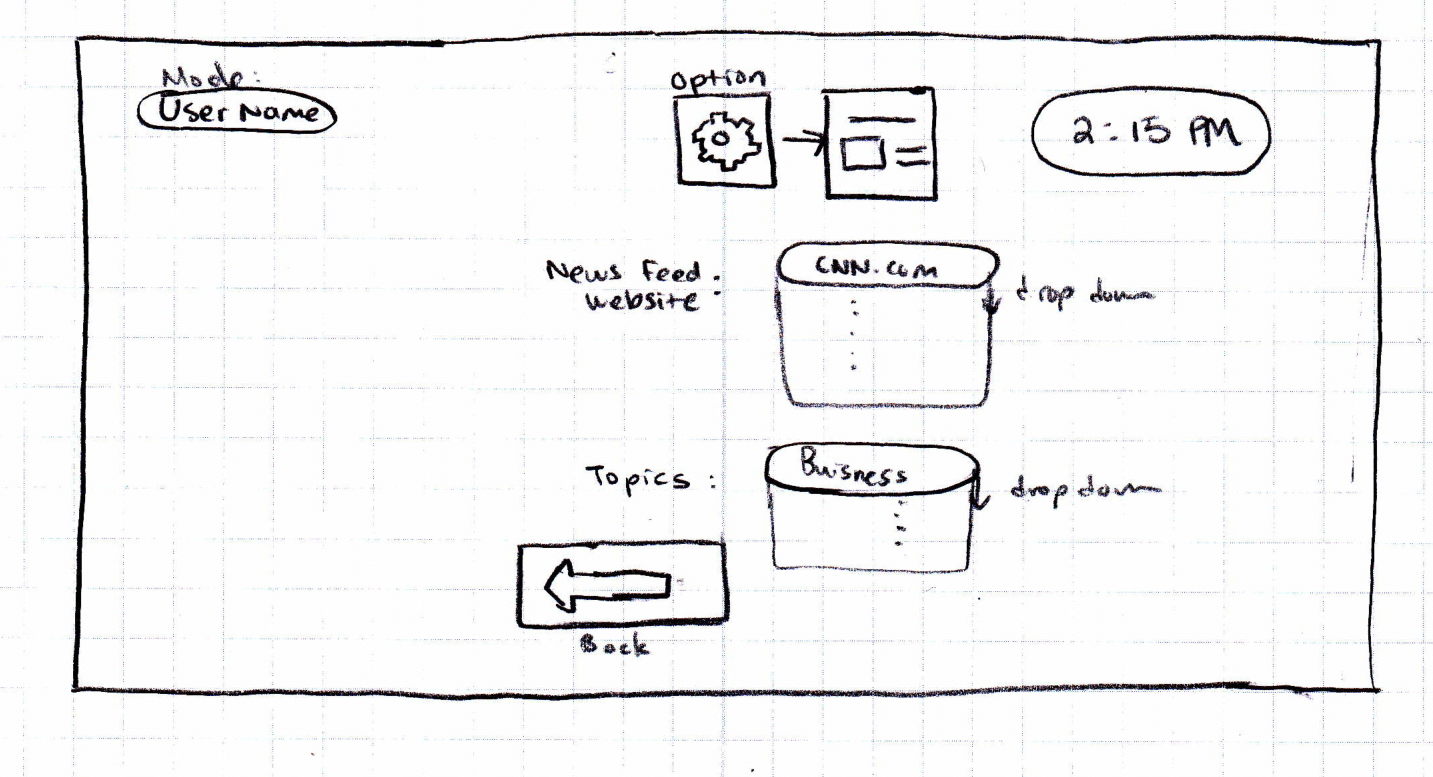 Mode:
User Name
option
2:15 PM
News Feed :
website
CNN.com
drop down
Topics :
Buisness
drop down
Back